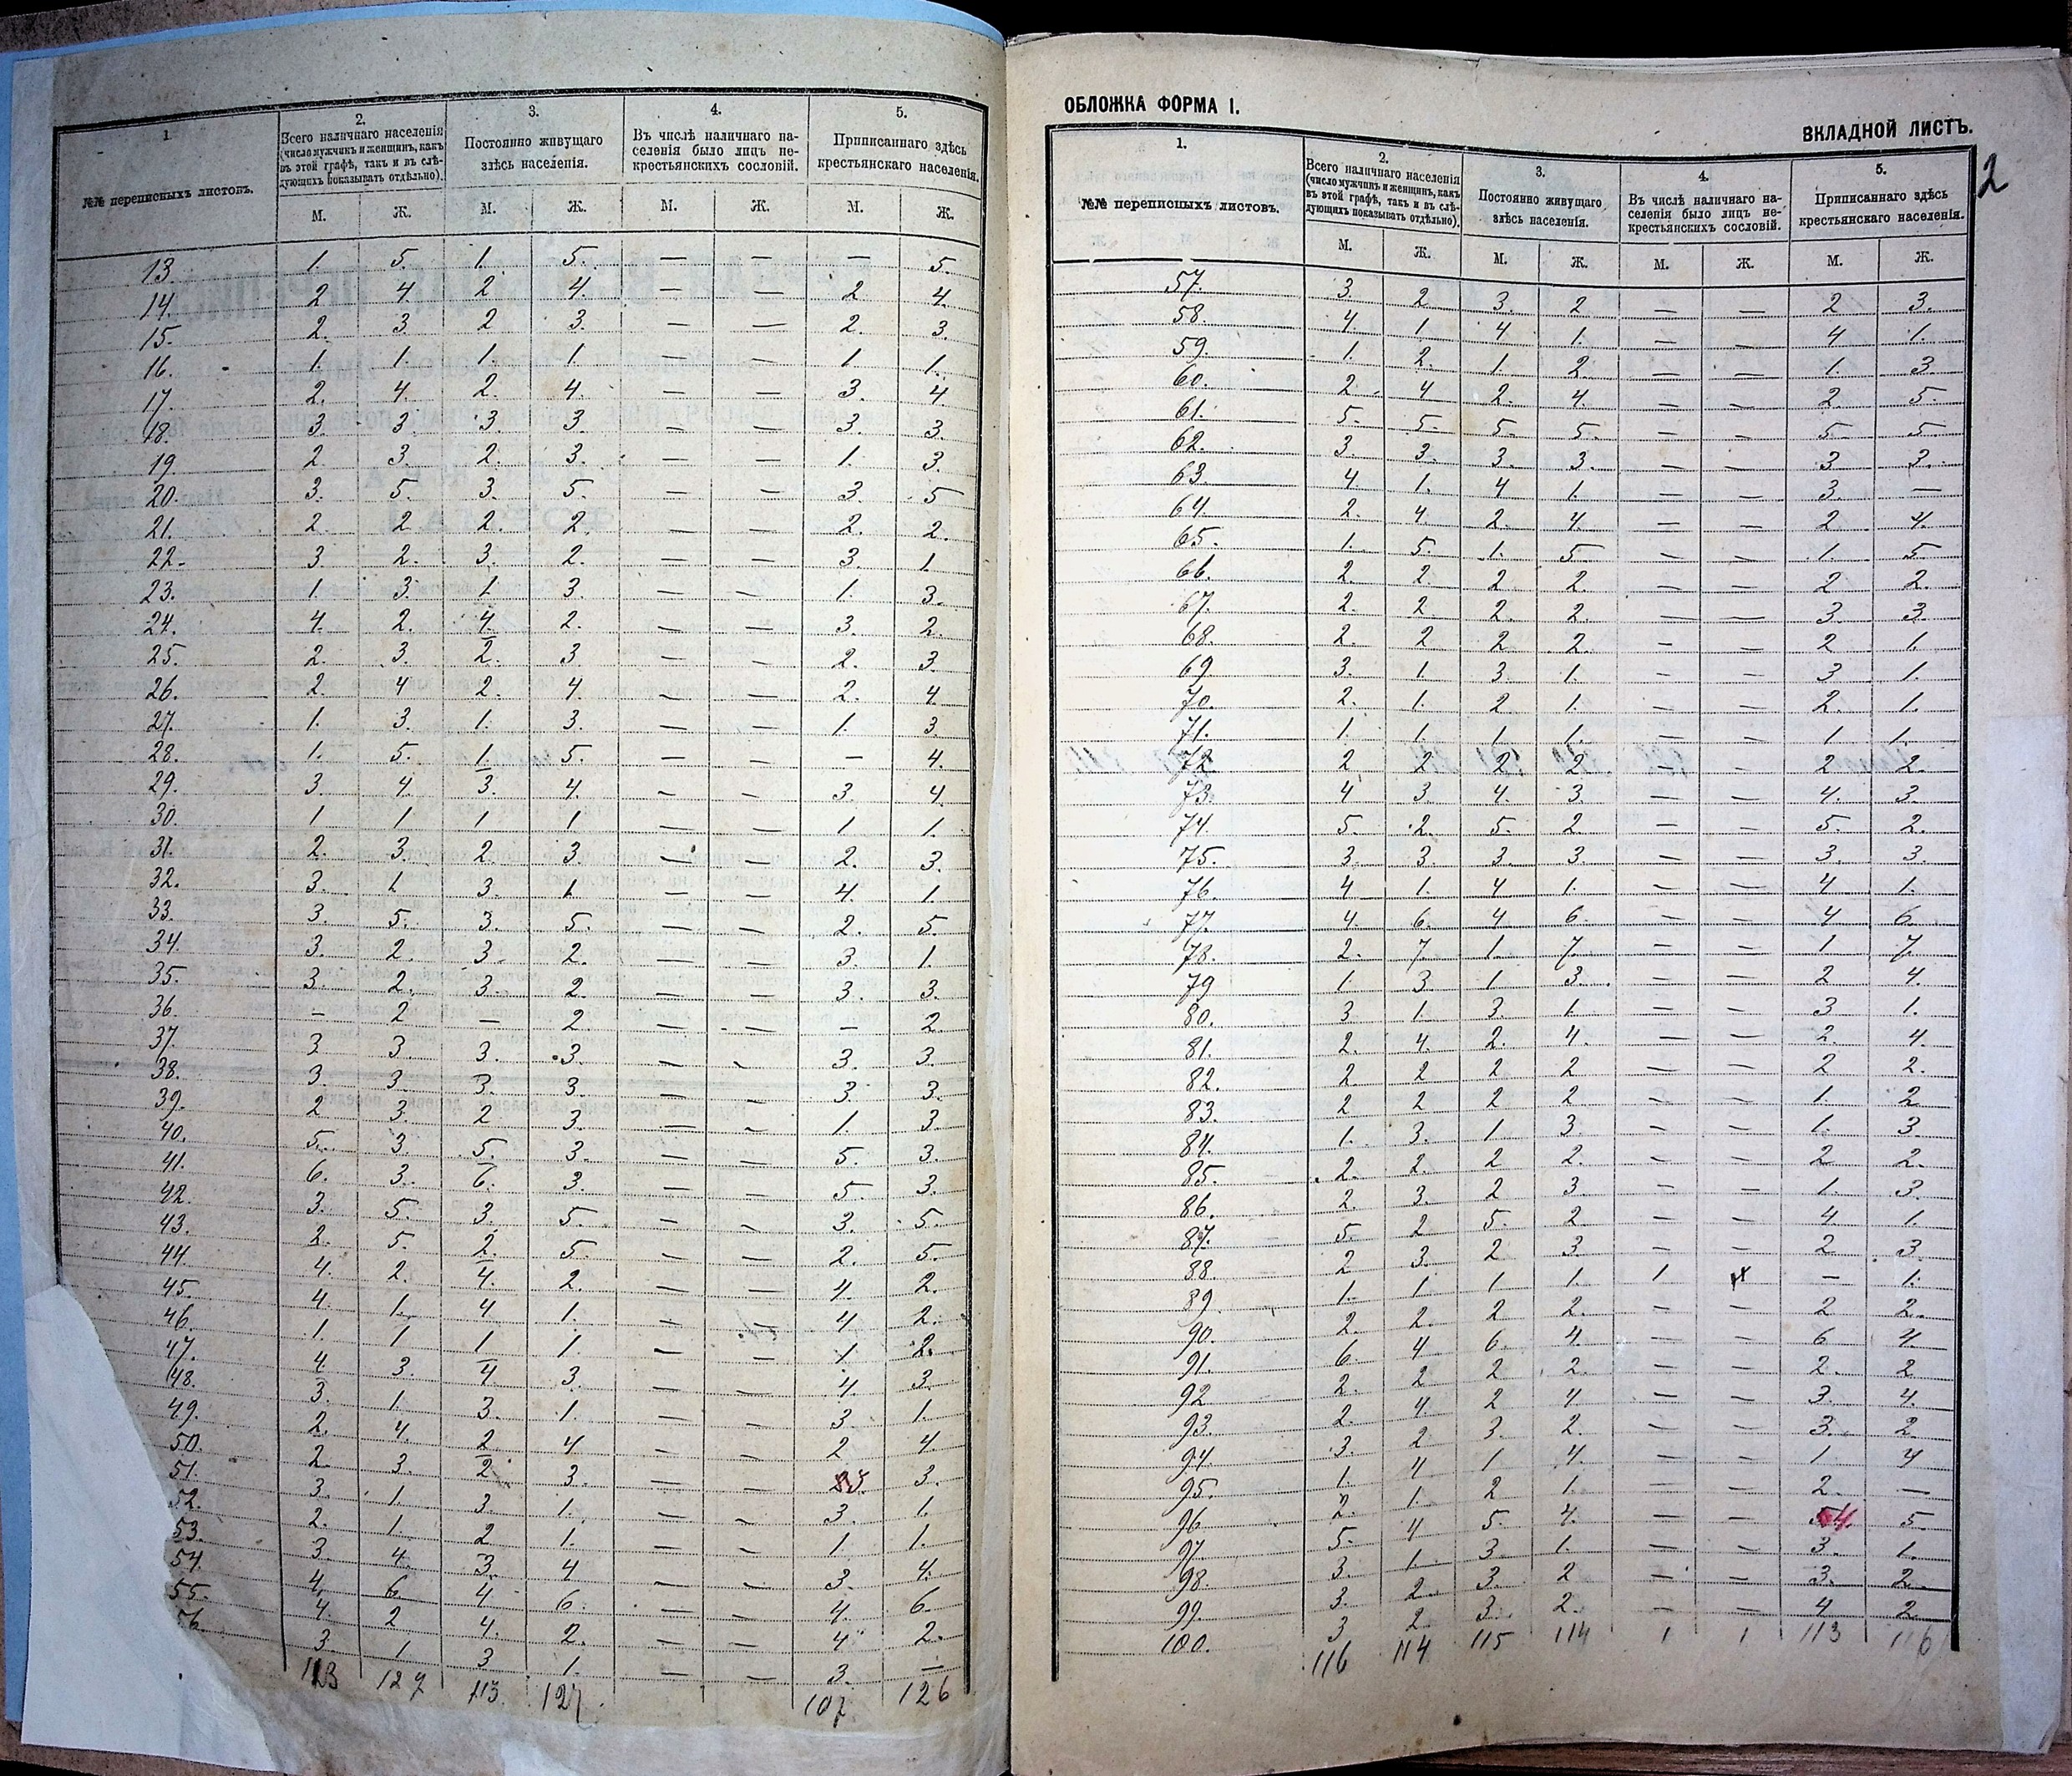 1.
2.
3.
4.
5.
№№ переписныхъ листовъ.
Всего наличнаго населенія
(число мужчинъ и женщинъ, какъ
въ этой графѣ, такъ и въ слѣ-
дующихъ показывать отдѣльно).
Постоянно живущаго
здѣсь населенія.
Въ числѣ наличнаго на-
селенія было лицъ не-
крестьянскихъ сословій.
Приписаннаго здѣсь
крестьянскаго населенія.
М. Ж. М. Ж. М. Ж. М. Ж.
13. 1. 5. 1. 5. — — — 5.
14. 2 4. 2 4. — — 2 4.
15. 2. 3 2 3. — — 2. 3.
16. 1. 1. 1. 1 — — 1 1.
17. 2. 4 2. 4. — — 3. 4
18. 3. 3. 3. 3 — — 3. 3.
19. 2. 3. 2. 3. — — 1. 3.
20. 3. 5. 3. 5. — — 3. 5
21. 2. 2 2. 2. — — 2. 2.
22. 3. 2. 3. 2. — — 3. 1.
23. 1 3. 1 3. — — 1. 3.
24. 4. 2. 4. 2. — — 3. 2.
25. 2. 3. 2. 3 — — 2. 3.
26. 2. 4 2. 4. — — 2. 4.
27. 1. 3. 1. 3. — — 1. 3
28. 1. 5. 1. 5. — — — 4.
29. 3. 4. 3. 4. — — 3. 4.
30. 1 1 1 1 — — 1 1.
31. 2. 3. 2. 3 — — 2. 3.
32. 3. 1. 3. 1. — — 4. 1.
33. 3. 5. 3. 5. — — 2. 5.
34. 3. 2. 3. 2. — — 3. 1.
35. 3. 2. 3. 2. — — 3. 3.
36. — 2 — 2. — — — 2.
37. 3 3. 3. 3. — — 3. 3.
38. 3. 3. 3. 3. — — 3. 3.
39. 2 3. 2 3. — — 1. 3.
40. 5. 3. 5. 3. — — 5. 3.
41. 6. 3. 6. 3. — — 5. 3.
42. 3. 5. 3. 5. — — 3. 5.
43. 2. 5. 2. 5. — — 2. 5.
44. 4. 2. 4. 2. — — 4. 2.
45. 4. 1. 4 1. — — 4 2.
46. 1. 1 1 1. — — 1 2.
47. 4. 3. 4 3. — — 4. 3.
48. 3. 1. 3. 1. — — 3. 1.
49. 2. 4. 2 4 — — 2 4
50. 2. 3. 2. 3. — — 3.
51. 3. 1. 3. 1. — — 3. 1.
52. 2. 1. 2 1. — — 1 1.
53. 3. 4. 3. 4 — — 3. 4.
54. 4. 6. 4. 6. — — 4. 6.
55. 4. 2 4. 2. — — 4 2.
56 3. 1 3 1. — — 3. —
113 127 113. 127. 107 126
ОБЛОЖКА ФОРМА I.
ВКЛАДНОЙ ЛИСТЪ.
2
1.
2.
3.
4.
5.
№№ переписныхъ листовъ.
Всего наличнаго населенія
(число мужчинъ и женщинъ, какъ
въ этой графѣ, такъ и въ слѣ-
дующихъ показывать отдѣльно).
Постоянно живущаго
здѣсь населенія.
Въ числѣ наличнаго на-
селенія было лицъ не-
крестьянскихъ сословій.
Приписаннаго здѣсь
крестьянскаго населенія.
М. Ж. М. Ж. М. Ж. М. Ж.
57. 3. 2 3. 2 — — 2 3.
58. 4. 1 4 1. — — 4 1.
59. 1. 2. 1 2. — — 1. 3.
60. 2. 4 2. 4. — — 2. 5.
61. 5. 5. 5. 5. — — 5. 5.
62. 3. 3. 3. 3. — — 3 3.
63 4 1. 4 1. — — 3. —
64. 2. 4. 2. 4. — — 2 4.
65. 1. 5. 1. 5 — — 1. 5
66. 2. 2. 2 2. — — 2 2.
67. 2. 2 2. 2. — — 3. 3.
68. 2. 2 2 2. — — 2 1.
69. 3. 1 3 1. — — 3 1.
70. 2. 1. 2 1. — — 2. 1.
71. 1. 1. 1 1. — — 1 1.
72. 2 2 2 2 — — 2 2.
73. 4 3. 4. 3. — — 4. 3.
74. 5. 2. 5. 2 — — 5. 2.
75. 3. 3. 3. 3. — — 3. 3.
76. 4 1. 4 1. — — 4 1.
77. 4. 6. 4 6. — — 4 6.
78. 2. 7. 1. 7. — — 1. 7.
79 1. 3. 1 3. — — 2 4.
80. 3 1. 3. 1. — — 3 1.
81. 2. 4. 2. 4. — — 2. 4.
82. 2. 2 2 2 — — 2 2.
83. 2 2 2 2 — — 1. 2
84. 1. 3. 1 3. — — 1. 3.
85. 2. 2. 2 2. — — 2 2.
86. 2. 3. 2 3. — — 1. 3.
87. 5. 2 5. 2. — — 4. 1.
88. 2 3. 2 3. — — 2 3.
89. 1. 1 1 1. 1 — 1.
90. 2. 2. 2 2. — — 2 2.
91. 6. 4 6. 4. — — 6 4.
92 2. 2 2 2. — — 2. 2
93. 2. 4. 2 4 — — 3. 4.
94. 3. 2 3. 2. — — 3. 2
95. 1. 4 1 4. — — 1. 4
96 2. 1. 2 1. — — 2. —
97. 5. 4 5. 4. — — 4. 5.
98. 3. 1. 3. 1. — — 3. 1.
99. 3. 2 3. 2 — — 3. 2.
100. 3 2. 3. 2. — — 4 2
116 114 115 114 1 1 113 116